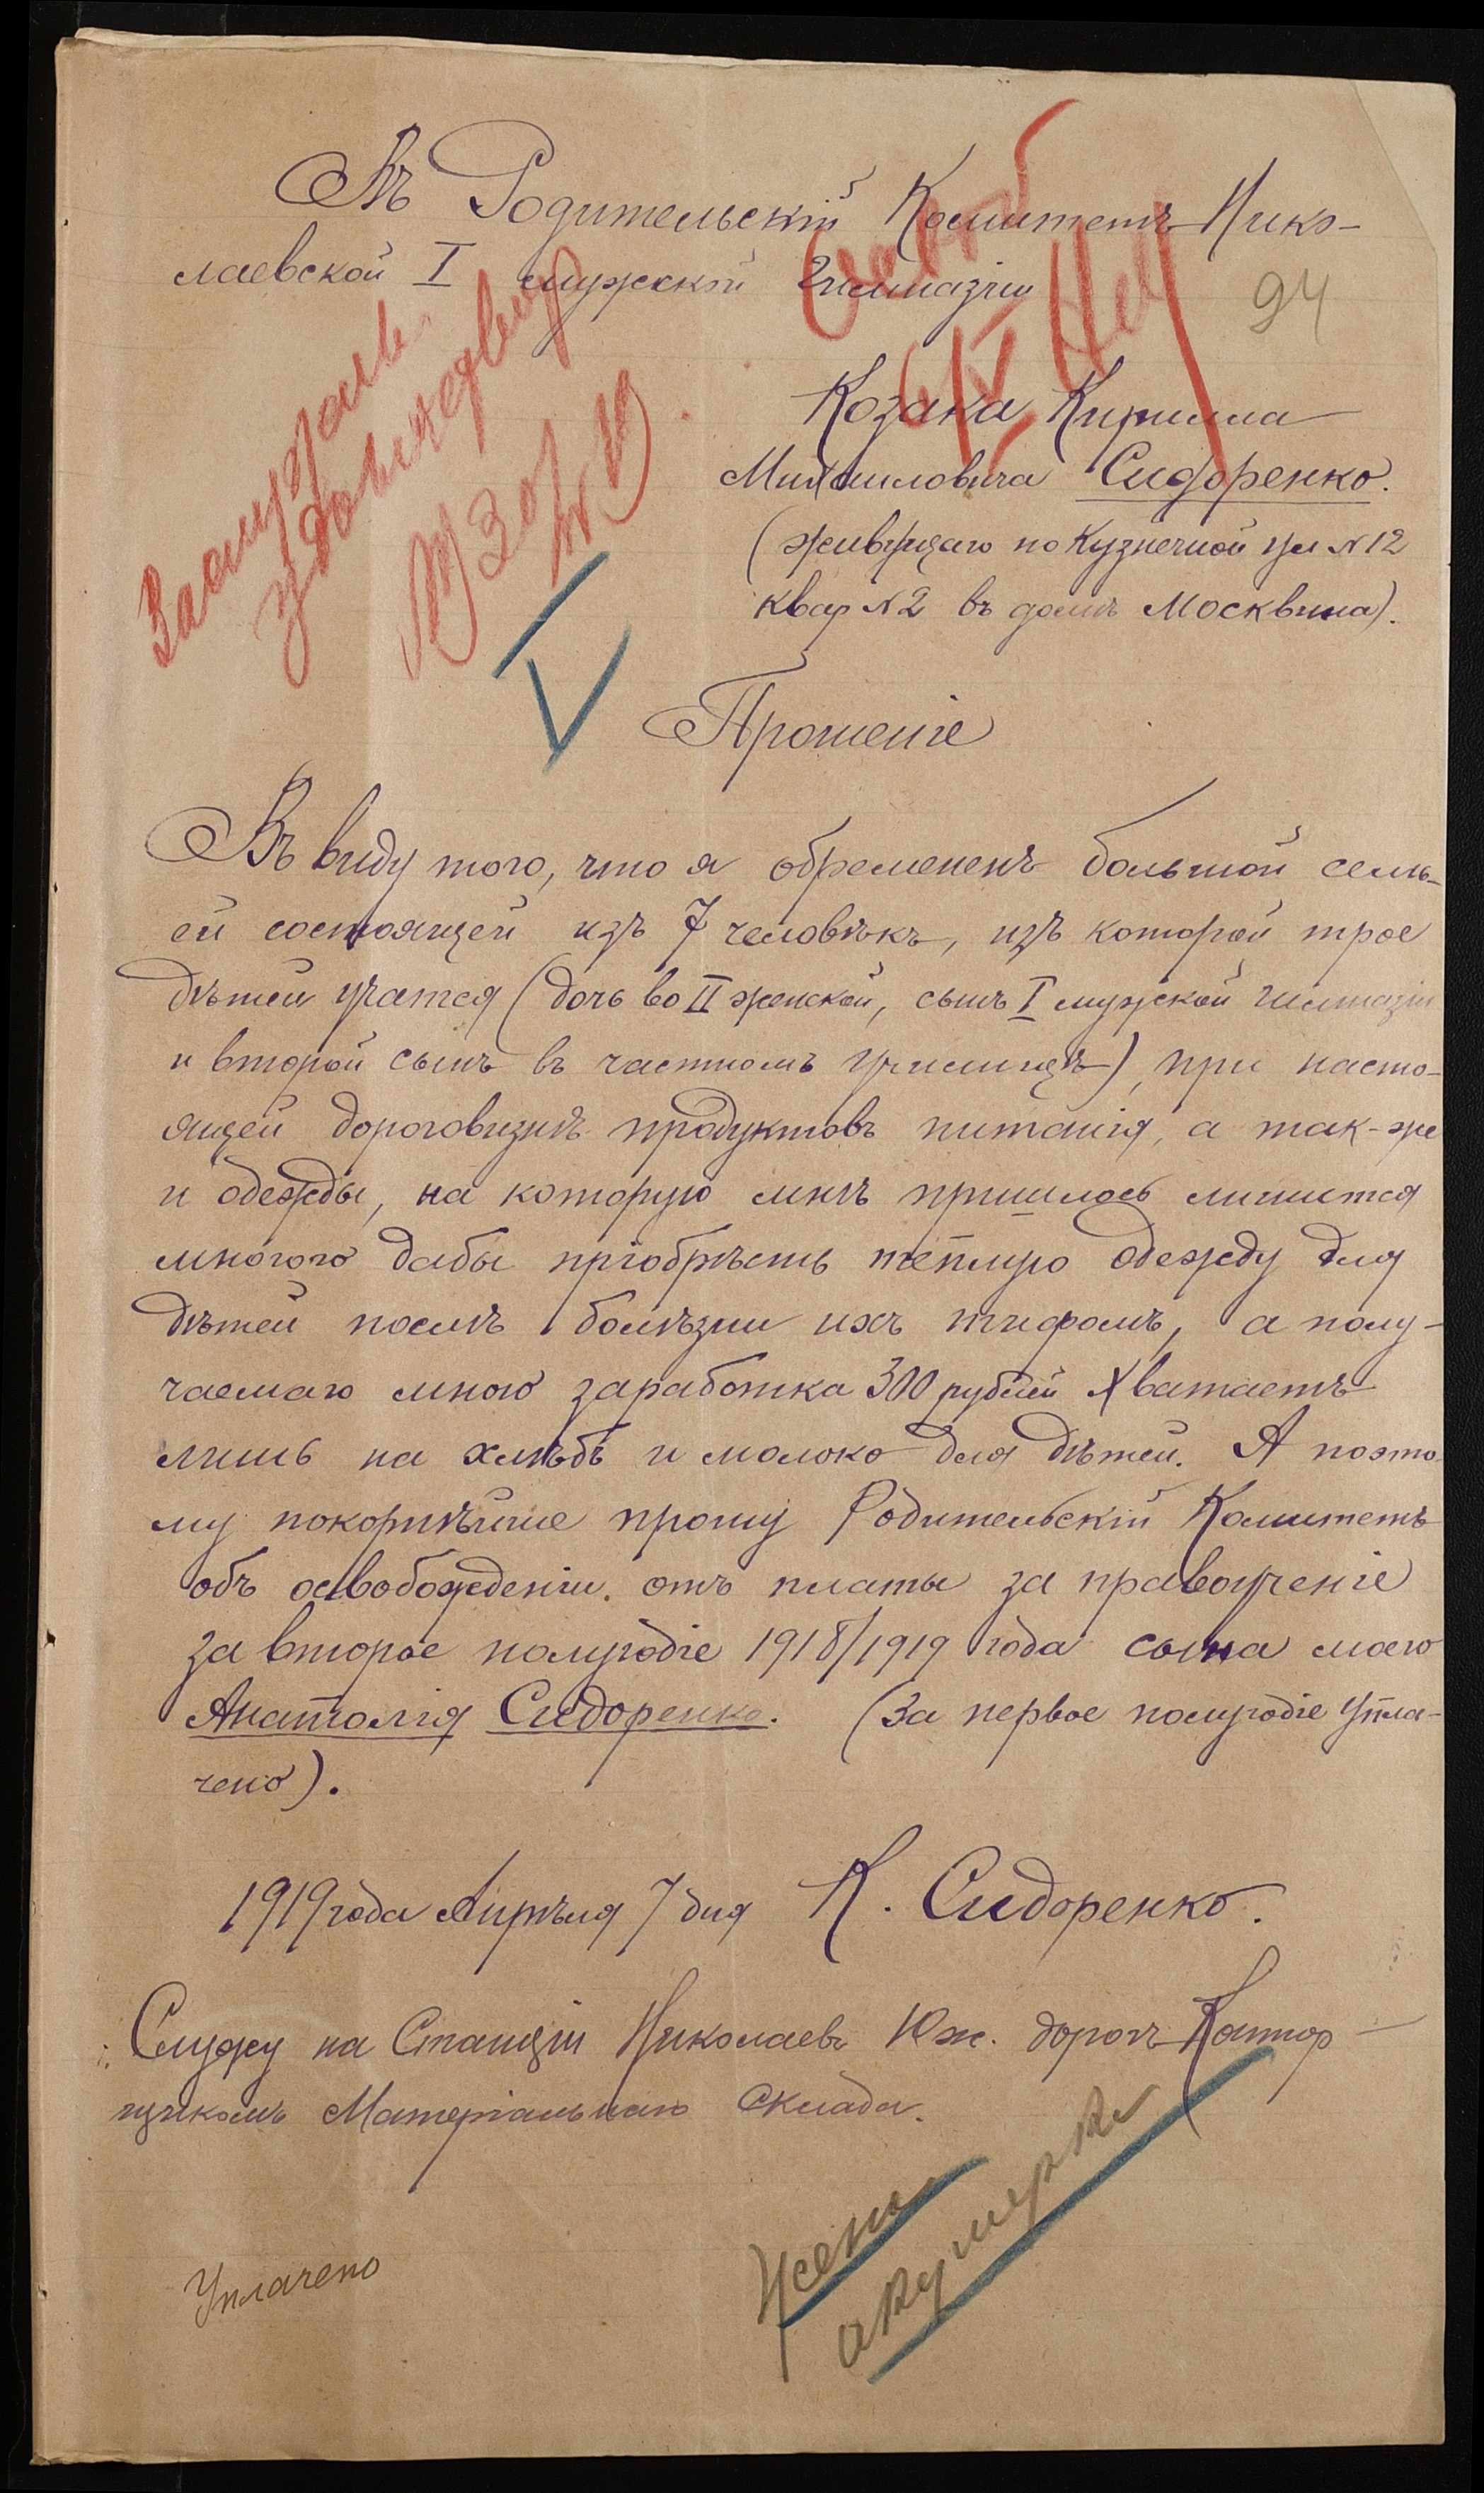 Въ Родительскій Комитетъ Нико-
лаевской I мужской Гимназіи
94
Козака Кирилла
Михаиловича Сидоренко.
(живущаго по Кузнечной ул № 12
квар № 2 въ домѣ Москвина).
Прошеніе
Въ виду того, что я обремененъ большой семь-
ей состоящей изъ 7 человѣкъ, изъ которой трое
дѣтей учатся (дочь во II женской, сынъ I мужской гимназіи
и второй сынъ въ частномъ училищѣ), при насто-
ящей дороговизнѣ продуктовъ питанія, а так-же
и одежды, на которую мнѣ пришлось лишится
многого дабы пріобрѣсть теплую одежду для
дѣтей послѣ болѣзни ихъ тифомъ, а полу-
чаемаго мною заработка 300 рублей хватаетъ
лишь на хлѣбъ и молоко для дѣтей. А поэто-
му покорнѣйше прошу Родительскій Комитетъ
объ освобожденіи. отъ платы за правоученіе
за второе полугодіе 1918/1919 года сына моего
Анатолія Сидоренко. (За первое полугодіе упла-
чено).
1919 года Апрѣля 7 дня К. Сидоренко.
Служу на Станціи Николаевъ Юж. дорогъ Контор-
щикомъ Матеріальнаго Склада.
Жена
акушерка
Уплачено